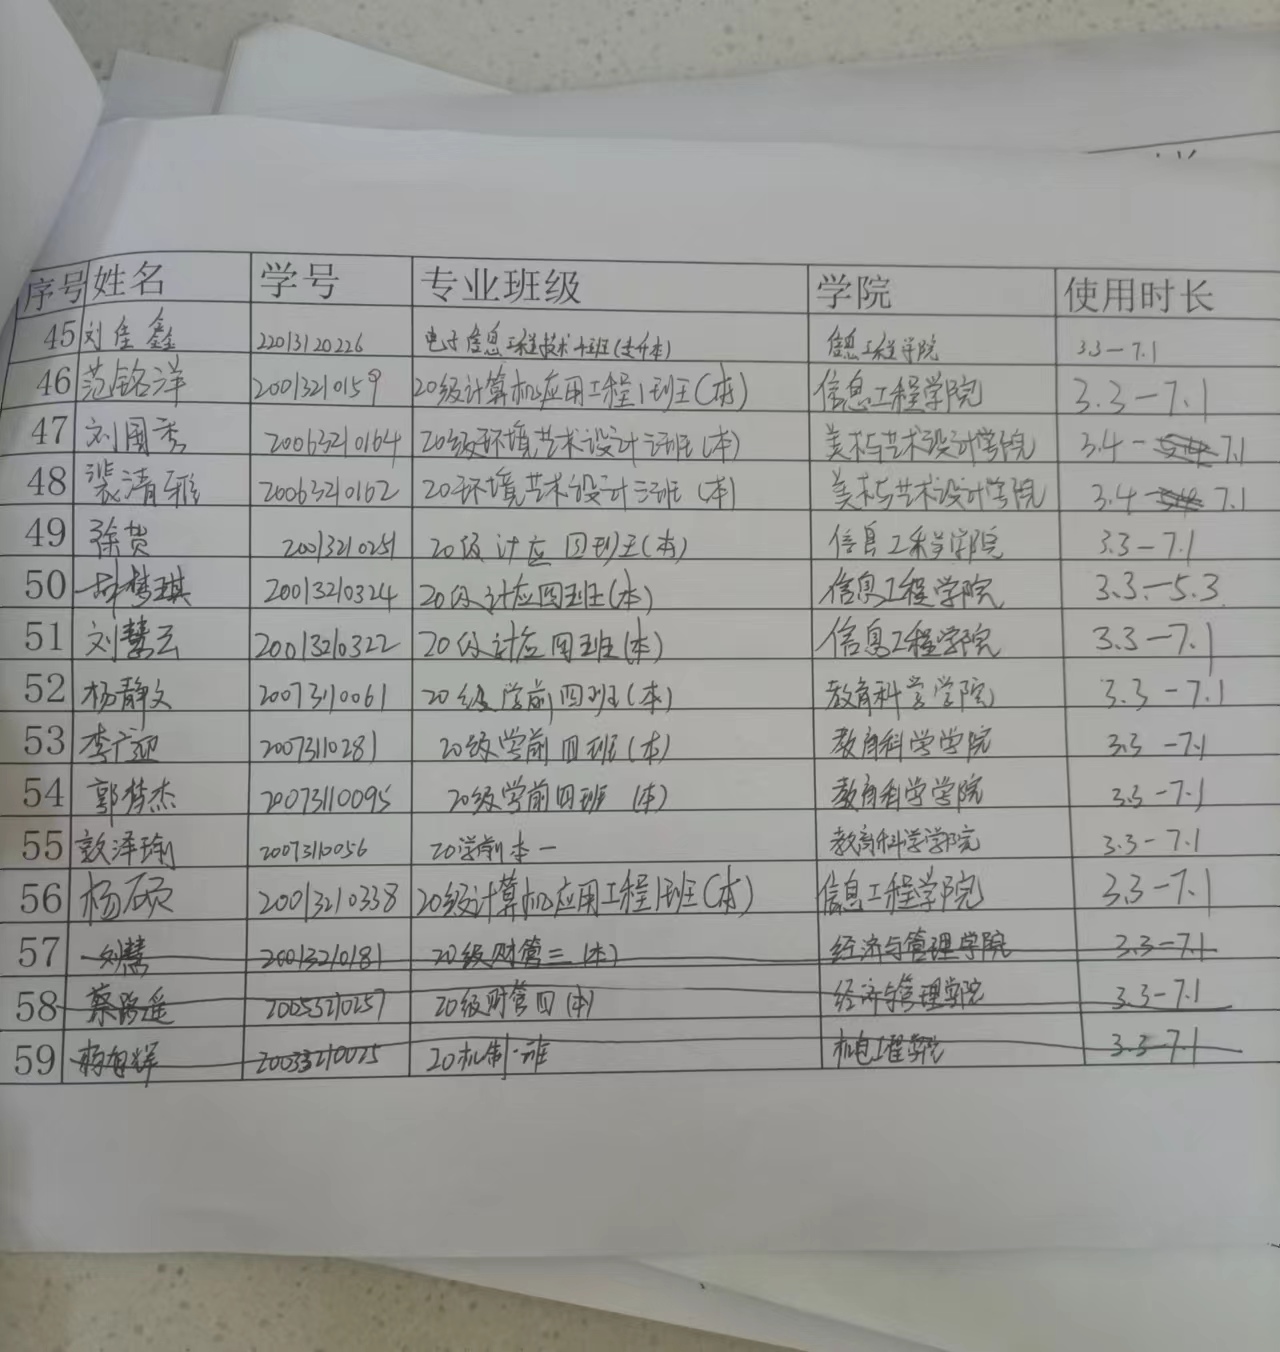 序号 姓名 学号 专业班级 学院 使用时长
45 刘佳鑫 22013120226 电子信息工程技术一班(专升本) 信息工程学院 3.3-7.1
46 范铭洋 20013210159 20级计算机应用工程1班(本) 信息工程学院 3.3-7.1
47 刘国秀 20063210164 20级环境艺术设计三班(本) 美术与艺术设计学院 3.4- 7.1
48 裴清雅 20063210162 20环境艺术设计三班(本) 美术与艺术设计学院 3.4- 7.1
49 徐贺 20013210251 20级计应四班(本) 信息工程学院 3.3-7.1
50 胡梦琪 20013210324 20级计应四班(本) 信息工程学院 3.3-5.3
51 刘慧云 20013210322 20级计应四班(本) 信息工程学院 3.3-7.1
52 杨静文 20073110061 20级学前四班(本) 教育科学学院 3.3-7.1
53 李广迎 20073110281 20级学前四班(本) 教育科学学院 3.3-7.1
54 郭梦杰 20073110095 20级学前四班(本) 教育科学学院 3.3-7.1
55 敦泽瑜 20073110056 20学前本一 教育科学学院 3.3-7.1
56 杨硕 20013210338 20级计算机应用工程1班(本) 信息工程学院 3.3-7.1
57 刘慧 20013210181 20级财管三(本) 经济与管理学院 3.3-7.1
58 蔡路遥 20053210257 20级财管四(本) 经济与管理学院 3.3-7.1
59 20033210025 20机制一班 机电工程学院 3.3-7.1